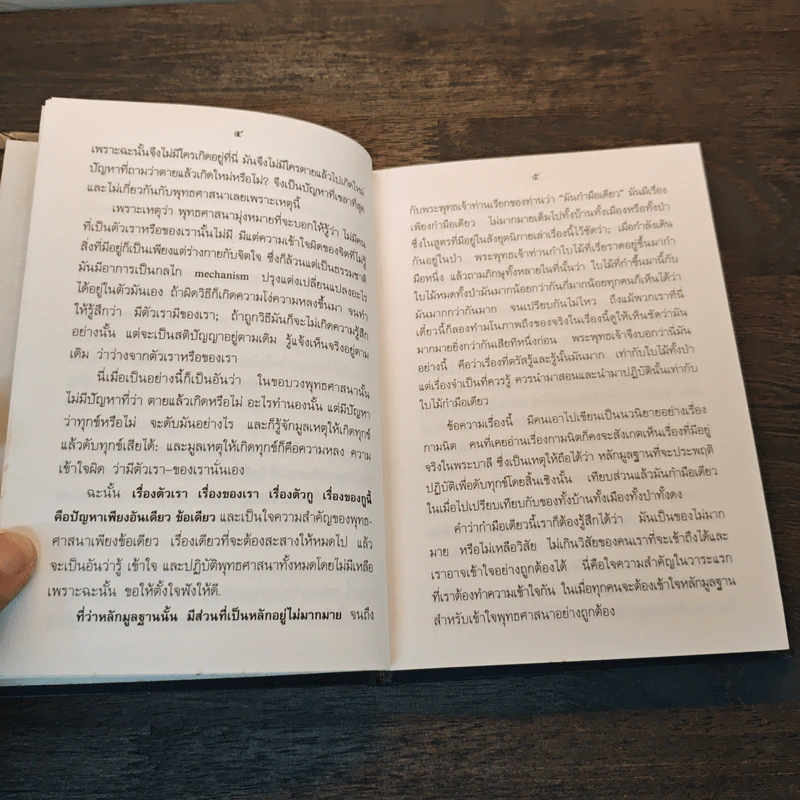 ๔
เพราะฉะนั้นจึงไม่มีใครเกิดอยู่ที่นี่ มันจึงไม่มีใครตายแล้วไปเกิดใหม่
ปัญหาที่ถามว่าตายแล้วเกิดใหม่หรือไม่? จึงเป็นปัญหาที่เขลาที่สุด
และไม่เกี่ยวกันกับพุทธศาสนาเลยเพราะเหตุนี้
เพราะเหตุว่า พุทธศาสนามุ่งหมายที่จะบอกให้รู้ว่า ไม่มีคน
ที่เป็นตัวเราหรือของเรานั้นไม่มี มีแต่ความเข้าใจผิดของจิตที่ไม่รู้
สิ่งที่มีอยู่ก็เป็นเพียงแต่ร่างกายกับจิตใจ ซึ่งก็ล้วนแต่เป็นธรรมชาติ
มันมีอาการเป็นกลไก mechanism ปรุงแต่งเปลี่ยนแปลงอะไร
ได้อยู่ในตัวมันเอง ถ้าผิดวิธีก็เกิดความโง่ความหลงขึ้นมา จนทำ
ให้รู้สึกว่า มีตัวเรามีของเรา; ถ้าถูกวิธีมันก็จะไม่เกิดความรู้สึก
อย่างนั้น แต่จะเป็นสติปัญญาอยู่ตามเดิม รู้แจ้งเห็นจริงอยู่ตาม
เดิม ว่าว่างจากตัวเราหรือของเรา
นี่เมื่อเป็นอย่างนี้ก็เป็นอันว่า ในขอบวงพุทธศาสนานั้น
ไม่มีปัญหาที่ว่า ตายแล้วเกิดหรือไม่ อะไรทำนองนั้น แต่มีปัญหา
ว่าทุกข์หรือไม่ จะดับมันอย่างไร และก็รู้จักมูลเหตุให้เกิดทุกข์
แล้วดับทุกข์เสียได้: และมูลเหตุให้เกิดทุกข์ก็คือความหลง ความ
เข้าใจผิด ว่ามีตัวเรา–ของเรานั่นเอง
ฉะนั้น เรื่องตัวเรา เรื่องของเรา เรื่องตัวกู เรื่องของกูนี้
คือปัญหาเพียงอันเดียว ข้อเดียว และเป็นใจความสำคัญของพุทธ-
ศาสนาเพียงข้อเดียว เรื่องเดียวที่จะต้องสะสางให้หมดไป แล้ว
จะเป็นอันว่ารู้ เข้าใจ และปฏิบัติพุทธศาสนาทั้งหมดโดยไม่มีเหลือ
เพราะฉะนั้น ขอให้ตั้งใจฟังให้ดี.
ที่ว่าหลักมูลฐานนั้น มีส่วนที่เป็นหลักอยู่ไม่มากมาย จนถึง
๕
กับพระพุทธเจ้าท่านเรียกของท่านว่า “มันกำมือเดียว” มันมีเรื่อง
เพียงกำมือเดียว ไม่มากมายเต็มไปทั้งบ้านทั้งเมืองหรือทั้งป่า
ซึ่งในสูตรที่มีอยู่ในสังยุตนิกายเล่าเรื่องนี้ไว้ชัดว่า; เมื่อกำลังเดิน
กันอยู่ในป่า พระพุทธเจ้าท่านกำใบไม้ที่เรี่ยราดอยู่ขึ้นมากำ
มือหนึ่ง แล้วถามภิกษุทั้งหลายในที่นั้นว่า ใบไม้ที่กำขึ้นมานี้กับ
ใบไม้หมดทั้งป่ามันมากน้อยกว่ากันกี่มากน้อยทุกคนก็เห็นได้ว่า
มันมากกว่ากันมาก จนเปรียบกันไม่ไหว ถึงแม้พวกเราที่นี่
เดี๋ยวนี้ก็ลองทำมโนภาพถึงของจริงในเรื่องนี้ดูให้เห็นชัดว่ามัน
มากมายยิ่งกว่ากันเสียทีหนึ่งก่อน พระพุทธเจ้าจึงบอกว่านี่มัน
อย่างนี้ คือว่าเรื่องที่ตรัสรู้และรู้นั้นมันมาก เท่ากับใบไม้ทั้งป่า
แต่เรื่องจำเป็นที่ควรรู้ ควรนำมาสอนและนำมาปฏิบัตินั้นเท่ากับ
ใบไม้กำมือเดียว
ข้อความเรื่องนี้ มีคนเอาไปเขียนเป็นนวนิยายอย่างเรื่อง
กามนิต คนที่เคยอ่านเรื่องกามนิตก็คงจะสังเกตเห็นเรื่องที่มีอยู่
จริงในพระบาลี ซึ่งเป็นเหตุให้ถือได้ว่า หลักมูลฐานที่จะประพฤติ
ปฏิบัติเพื่อดับทุกข์โดยสิ้นเชิงนั้น เทียบส่วนแล้วมันกำมือเดียว
ในเมื่อไปเปรียบเทียบกับของทั้งบ้านทั้งเมืองทั้งป่าทั้งดง
คำว่ากำมือเดียวนี้เราก็ต้องรู้สึกได้ว่า มันเป็นของไม่มาก
มาย หรือไม่เหลือวิสัย ไม่เกินวิสัยของคนเราที่จะเข้าถึงได้และ
เราอาจเข้าใจอย่างถูกต้องได้ นี่คือใจความสำคัญในวาระแรก
ที่เราต้องทำความเข้าใจกัน ในเมื่อทุกคนจะต้องเข้าใจหลักมูลฐาน
สำหรับเข้าใจพุทธศาสนาอย่างถูกต้อง